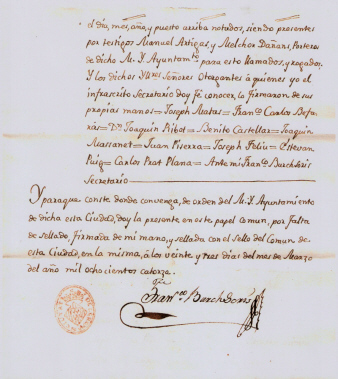 el dia, mes, año, y puesto arriba notados, siendo presentes
por testigos Manuel Artigas, y Melchor Dañans, Porteros
de dicho M. Y. Ayuntamto. para esto llamados, y rogados.
Y los dichos Señores Otorgantes à quienes yo el
infrascrito Secretario doy fé conocer, la firmaron de sus
propias manos = Joseph Matas = Franco. Carlos
= Dn. Joaquin Ribot = Benito Castellar = Joaquin
Massanet = Juan Pierra = Joseph Feliu = Estevan
Puig = Carlos Prat Plana = Antemi Franco. Burchdoris
Secretario
Y paraque conste donde convenga, de orden del M. Y. Ayuntamiento
de dicha esta Ciudad, doy la presente en este papel comun, por falta
de sellado, firmada de mi mano, y sellada con el sello del Comun de
esta Ciudad, en la misma, à los veinte y tres dias del mes de Marzo
del año mil ochocientos catorze.
Franco. Burchdoris